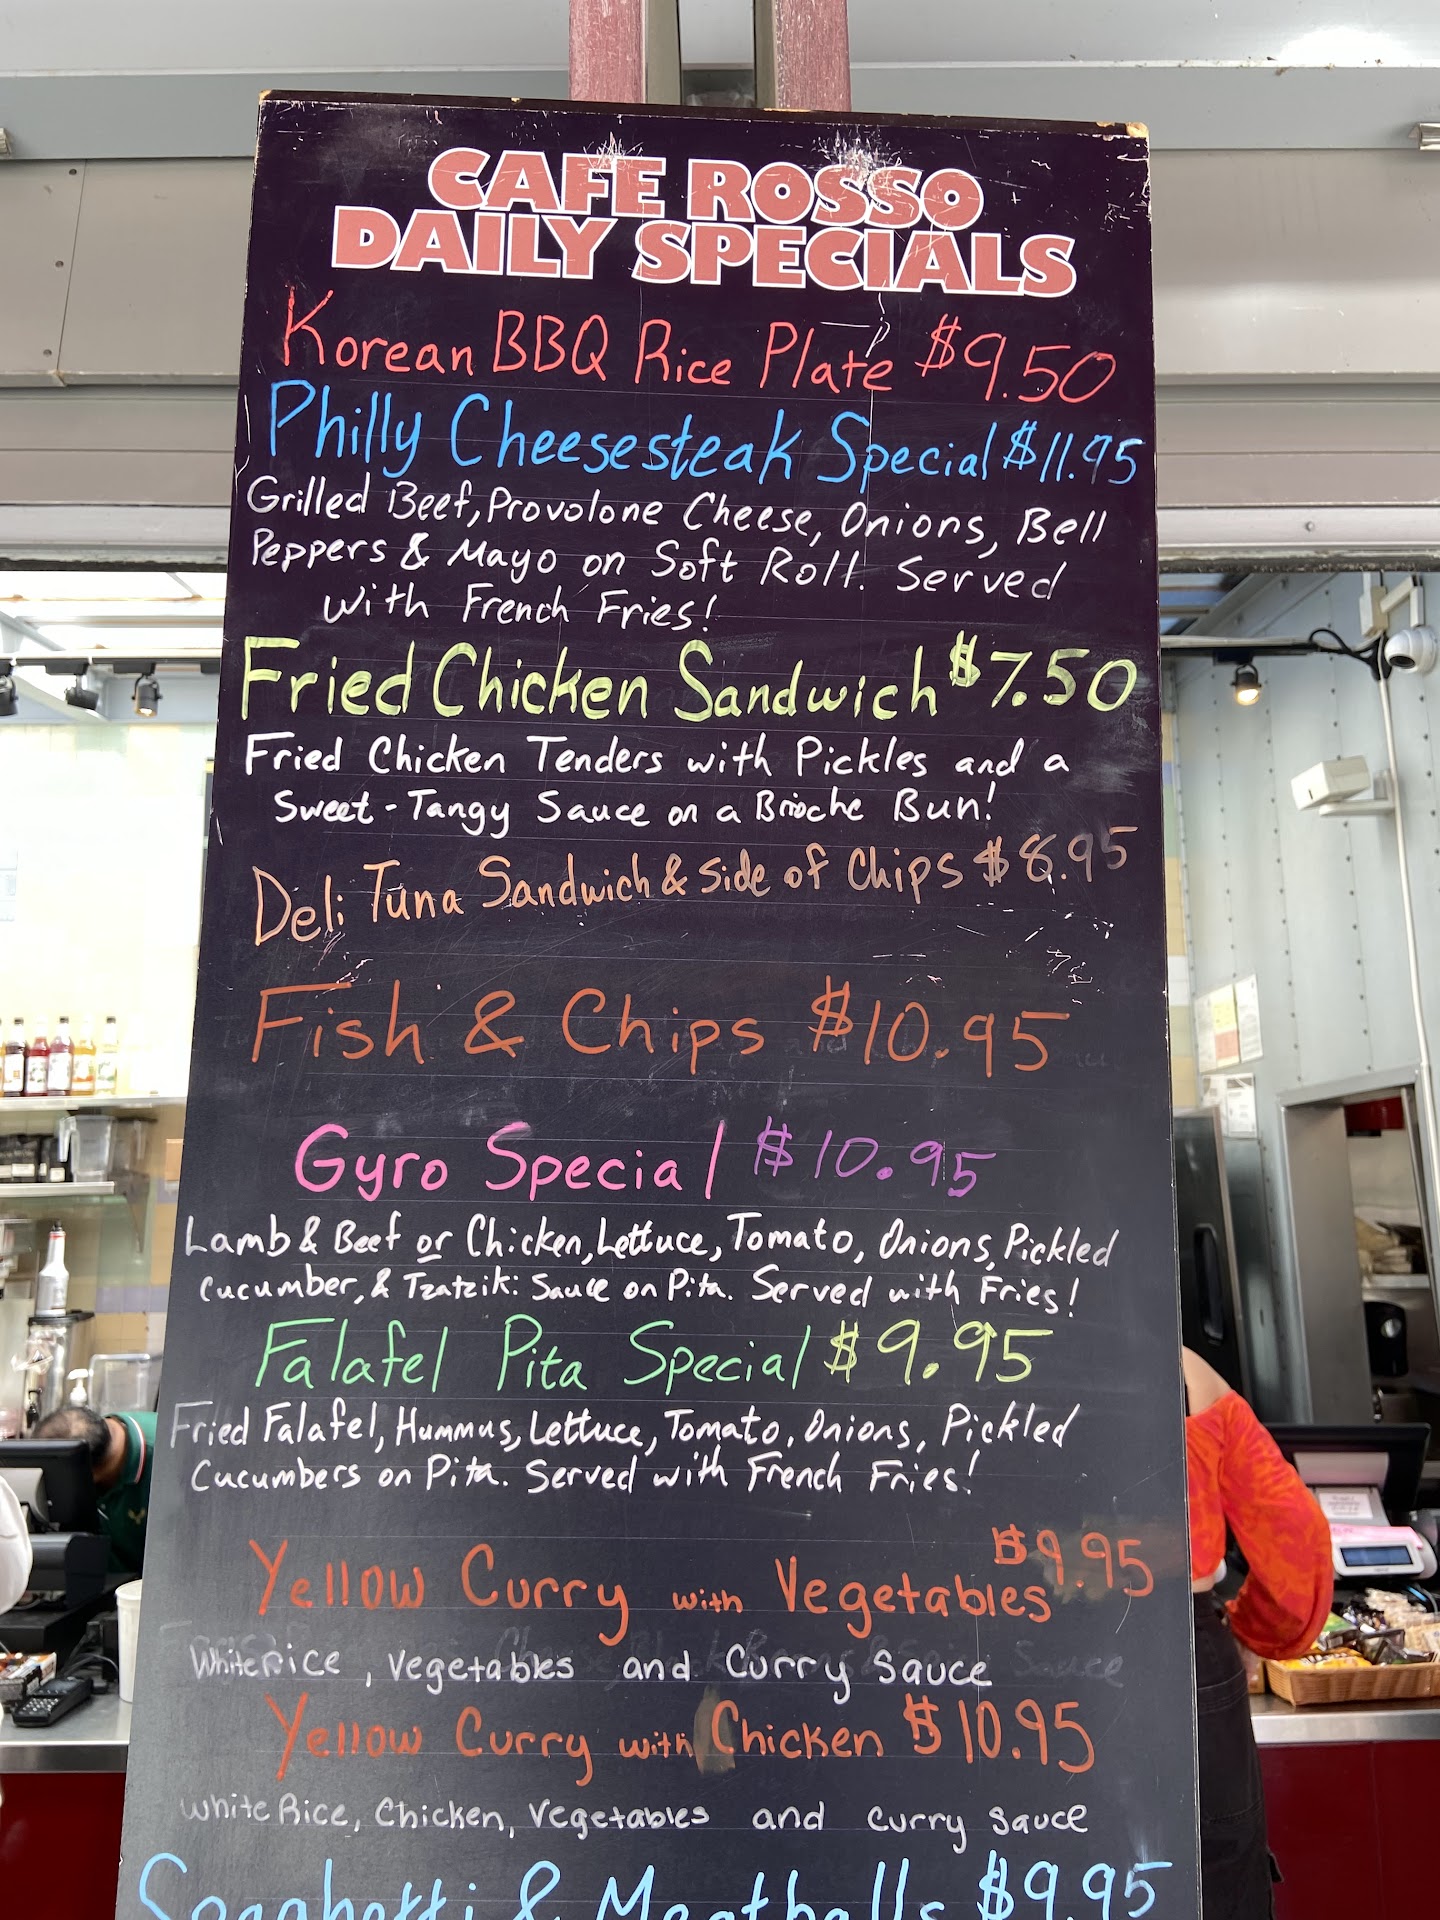 CAFE ROSSO
DAILY SPECIALS
Korean BBQ Rice Plate $9.50
Philly Cheesesteak Special $11.95
Grilled Beef, Provolone Cheese, Onions, Bell
Peppers & Mayo on Soft Roll. Served
with French Fries!
Fried Chicken Sandwich $7.50
Fried Chicken Tenders with Pickles and a
Sweet-Tangy Sauce on a Brioche Bun!
Deli Tuna Sandwich & side of Chips $8.95
Fish & Chips $10.95
Gyro Special $10.95
Lamb & Beef or Chicken, Lettuce, Tomato, Onions, Pickled
Cucumber, & Tzatziki Sauce on Pita. Served with Fries!
Falafel Pita Special $9.95
Fried Falafel, Hummus, Lettuce, Tomato, Onions, Pickled
Cucumbers on Pita. Served with French Fries!
Yellow Curry with Vegetables $9.95
White rice, vegetables and curry sauce
Yellow Curry with Chicken $10.95
White Rice, Chicken, Vegetables and curry sauce
Spaghetti & Meatballs $9.95